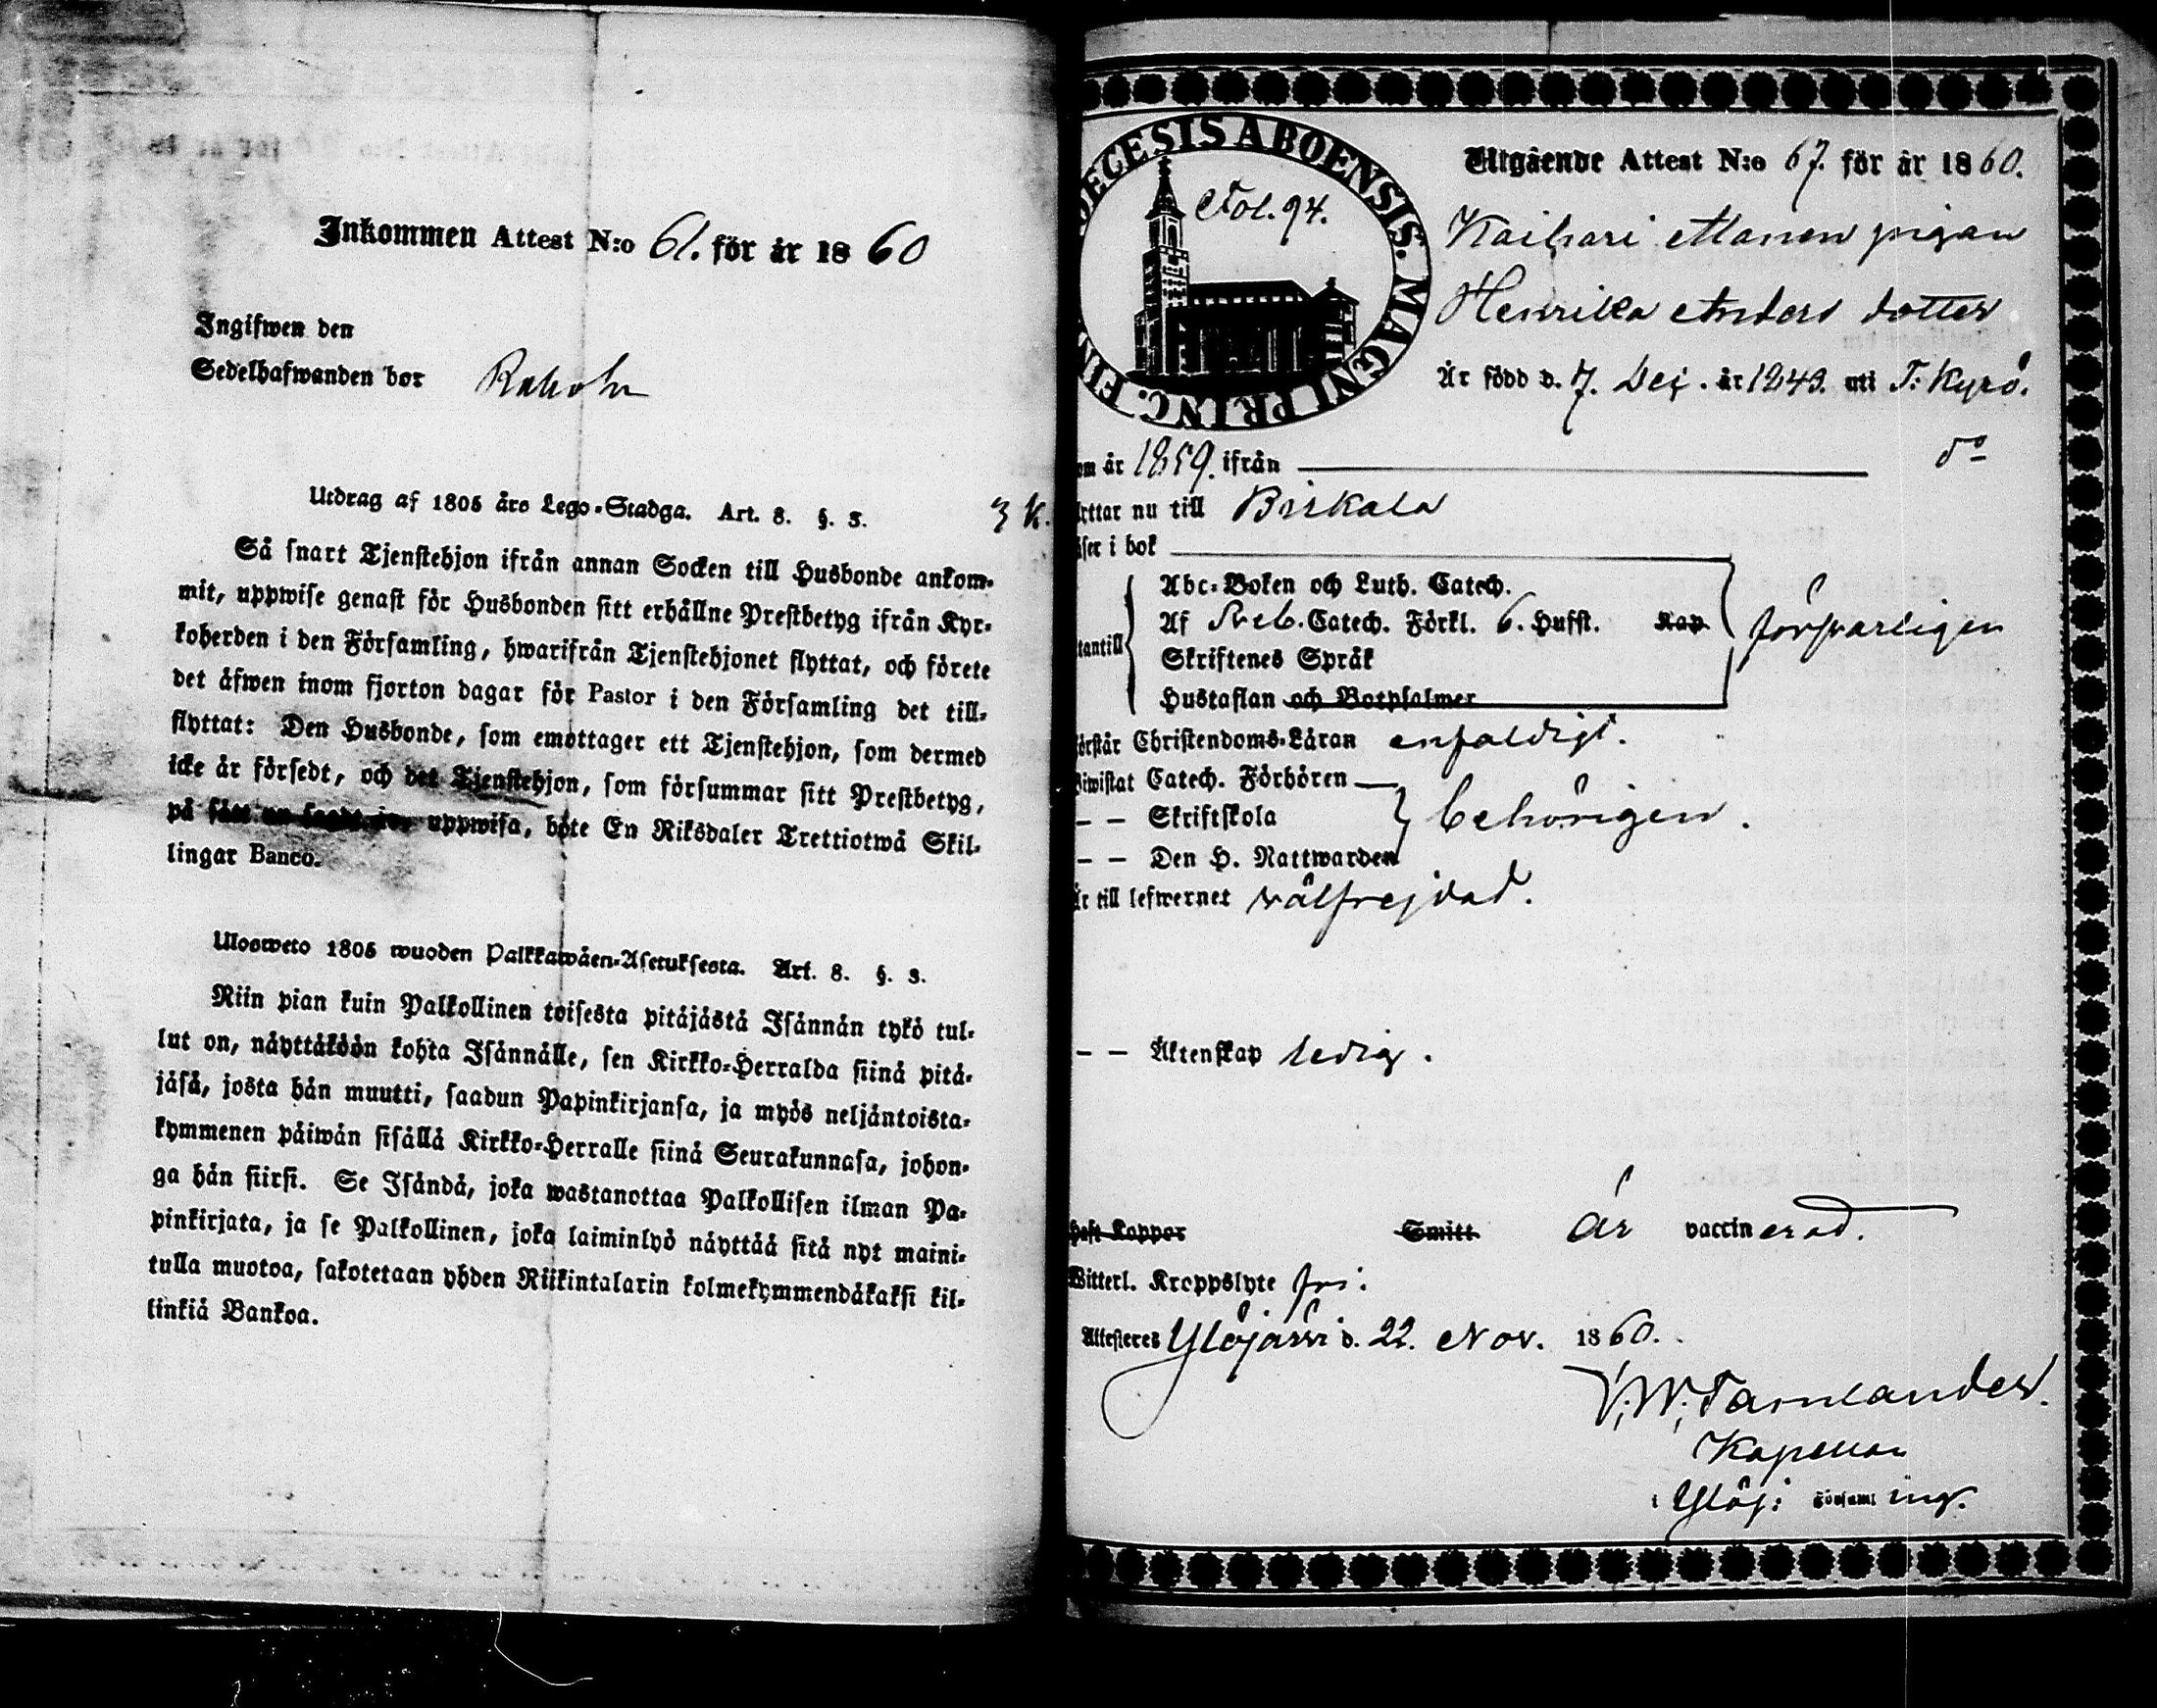 Inkommen Attest N:o 61. för år 1860
Ingifwen den
Sedelhafwanden bor Rahola
Utdrag af 1805 års Lego-Stadga. Art. 8. §. 3.
Så snart Tjenstehjon ifrån annan Socken till Husbonde ankom-
mit, uppwise genast för Husbonden sitt erhållne Prestbetyg ifrån Kyr-
koherden i den Församling, hwarifrån Tjenstehjonet flyttat, och förete
det äfwen inom fjorton dagar för Pastor i den Församling det till-
flyttat: Den Husbonde, som emottager ett Tjenstehjon, som dermed
icke är försedt, och det Tjenstehjon, som försummar sitt Prestbetyg,
på sätt uppwisa, böte En Riksdaler Trettiotwå Skil-
lingar Banco.
Ulosweto 1805 wuoden Palkkawäen-Asetuksesta. Art. 8. §. 3.
Niin pian kuin Palkollinen toisesta pitäjästä Isännän tykö tul-
lut on, näyttäköön kohta Isännälle, sen Kirkko-Herralda siinä pitä-
jäsä, josta hän muutti, saadun Papinkirjansa, ja myös neljäntoista-
kymmenen päiwän sisällä Kirkko-Herralle siinä Seurakunnasa, johon-
ga hän siirsi. Se Isändä, joka wastanottaa Palkollisen ilman Pa-
pinkirjata, ja se Palkollinen, joka laiminlyö näyttää sitä nyt maini-
tulla muotoa, sakotetaan yhden Riikintalarin kolmekymmendäkaksi kil-
linkiä Bankoa.
3 k.
DECESIS ABOENSIS. MAGNI PRINC. FIN
Fol. 94.
Utgående Attest N:o 67. för år 1860.
Kaihari Manen pigan
Henrika Anders dotter
Är född d. 7. Dec. år 1843. uti T: Kyrö.
om år 1859. ifrån d:o
yttar nu till Birkala
äser i bok
Abc-Boken och Luth. Catech.
Af Sveb. Catech. Förkl. 6. Hufst. Kap
tantill
Skriftenes Språk
Hustaflan och Botpsalmer
försvarligen
örstår Christendoms-Läran enfaldigt.
iwistat Catech. Förhören
– – Skriftskola
– – Den H. Nattwarden
behörigen.
Är till lefwernet välfrejdad.
– – Äktenskap ledig.
Haft Koppor Smitt är vaccinerad.
Witterl. Kroppslyte fri.
Attesteres Ylöjärvi d. 22. Nov. 1860.
V. W. Tamlander.
Kapellan
i Ylöj: Församling.